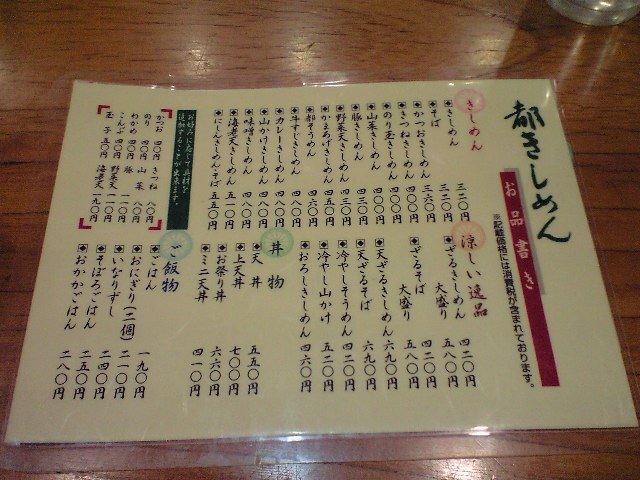 都きしめん
お品書き
※記載価格には消費税が含まれております。
きしめん
◆きしめん 三二〇円
◆そば 三二〇円
◆かつおきしめん 三六〇円
◆きつねきしめん 四〇〇円
◆のり玉きしめん 四〇〇円
◆山菜きしめん 四〇〇円
◆豚きしめん 四三〇円
◆野菜天きしめん 四三〇円
◆かまあげきしめん 四五〇円
◆都そうめん 四六〇円
◆牛すじきしめん 四八〇円
◆カレーきしめん 四八〇円
◆山かけきしめん 四八〇円
◆味噌きしめん 四八〇円
◆海老天きしめん 五五〇円
◆にしんきしめん・そば 五五〇円
お好みに応じて具材を
追加することが出来ます。
かつお 四〇円 きつね 八〇円
のり 四〇円 山菜 八〇円
わかめ 四〇円 豚 一一〇円
こんぶ 四〇円 野菜天 一一〇円
玉子 五〇円 海老天 一九〇円
涼しい逸品
◆ざるきしめん 四二〇円
大盛り 五八〇円
◆ざるそば 四二〇円
大盛り 五八〇円
◆天ざるきしめん 六九〇円
◆天ざるそば 六九〇円
◆冷やしそうめん 四二〇円
◆冷やし山かけ 五二〇円
◆おろしきしめん 四六〇円
丼物
◆天丼 五五〇円
◆上天丼 七〇〇円
◆お祭り丼 六六〇円
◆ミニ天丼 四一〇円
ご飯物
◆ごはん 一九〇円
◆おにぎり(二個) 二一〇円
◆いなりずし 二四〇円
◆そぼろごはん 二五〇円
◆おかかごはん 二八〇円